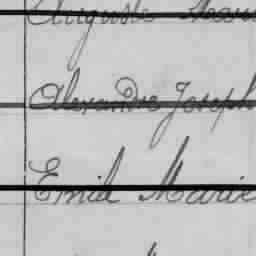 Auguste
Alexandre Joseph
Emil Marie